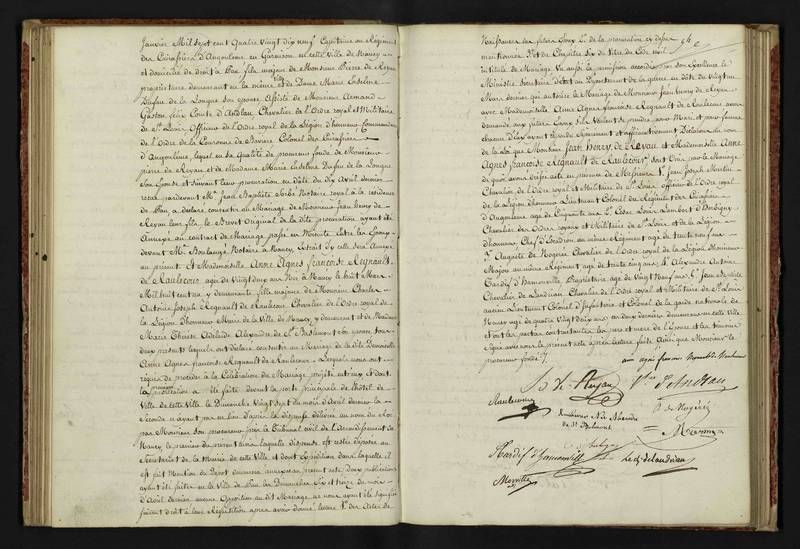 Janvier Mil Sept cent Quatre Vingt dix neuf Capitaine au Régiment
des Cuirassiers d'Angoulême en Garnison en cette Ville de Nancy
et domicilié de droit à Pau fils majeur de Monsieur Pierre de Reyau
propriétaire demeurant en la même Ville et de Dame Marie
Dufau de la Longue son épouse Assisté de Monsieur Armand
Gaston Félix Comte d'Andlau Chevalier de l'Ordre royal et Militaire
de St Louis Officier de l'Ordre royal de la Légion d'honneur, Commandeur
de l'Ordre de la Couronne de Bavière Colonel des Cuirassiers
d'Angoulême, lequel en sa qualité de procureur fondé de Monsieur
pierre de Reyau et de Madame Marie Dufau de la Longue
son Epouse et suivant leur procuration en date du Dix Avril dernier
reçue pardevant Me Jean Baptiste Notaire royal à la résidence
de Pau, a déclaré consentir au Mariage de Monsieur Jean henry de
Reyau leur fils, le Brevet Original de la dite procuration ayant été
Annexé au contrat de Mariage passé en Minute Entre les Epoux
devant Me Boulangé Notaire à Nancy, Extrait d'y celle sera Annexé
au présent Et Mademoiselle Anne Agnès françoise Regnault
de Raulecour agée de Vingt deux ans Née à Nancy le huit
Mil huit cent un y demeurante fille majeure de Monsieur Charles
Antoine Joseph Regnault de Raulecour Chevalier de l'Ordre royal de
la Légion d'honneur Maire de la Ville de Nancy y demeurant et de Madame
Marie Thérèse Adélaïde Alexandre de St Balmont son épouse tous
deux présents lesquels ont déclaré consentir au Mariage de la dite Demoiselle
Anne Agnès françoise Regnault de Raulecour. Lesquels nous ont
requis de procéder à la Célébration du Mariage projeté entre eux et dont
la publication a été faite devant la porte principale de l'hôtel de
Ville de cette Ville le Dimanche Vingt Sept du mois d'Avril dernier la
seconde n'ayant pas eu lieu d'après la dispense délivrée au nom du Roi
par Monsieur son procureur près le Tribunal civil de l'Arrondissement de
Nancy le premier du présent mois laquelle dispense est restée déposée au
Secrétariat de la Mairie de cette Ville et dont Expédition dans laquelle il
est fait Mention du Dépôt demeure annexée au présent acte Deux publications
ayant été faites en la Ville de Pau les Dimanches Six et treize du mois
d'Avril dernier aucune Opposition au dit Mariage ne nous ayant été signifiée
faisant droit à leur Réquisition après avoir donné lecture 1° des Actes de
Naissances des futurs Epoux 2° de la procuration ci dessus
mentionnée 3° et du Chapitre Six du titre du Code civil
intitulé du Mariage Vu aussi la permission accordée par son Excellence le
Ministre Secrétaire d'Etat au Département de la guerre en date du Vingt un
Mars dernier qui autorise le Mariage de Monsieur Jean henry de Reyau
avec Mademoiselle Anne Agnès françoise Regnault de Raulecour avons
demandé aux futurs Epoux s'ils Veulent se prendre pour Mari et pour femme
chacun d'Eux ayant répondu séparément et affirmativement Déclarons au nom
de la Loi que Monsieur Jean henry de Reyau et Mademoiselle Anne
Agnès françoise Regnault de Raulecour sont Unis par le Mariage
de quoi avons dressé acte en présence de Messieurs 1° Jean Joseph Martin
Chevalier de l'Ordre royal et Militaire de St Louis officier de l'Ordre royal
de la Légion d'honneur Lieutenant Colonel du Régiment des Cuirassiers
d'Angoulême agé de Cinquante ans 2° César Louis Lambert
Chevalier des Ordres royaux et Militaire de St Louis et de la Légion
d'honneur Chef d'Escadron au même Régiment agé de trente neuf ans
3° Auguste de Nogerée Chevalier de l'Ordre royal de la Légion d'honneur
Major au même Régiment agé de trente cinq ans 4° Alexandre Antoine
Tardif d'hamonville, propriétaire agé de Vingt Neuf ans
Chevalier de Landrian Chevalier de l'Ordre royal et Militaire de St Louis
ancien Lieutenant Colonel d'Infanterie et Colonel de la garde nationale de
Nancy agé de quatre Vingt deux ans ces deux derniers demeurant en cette Ville
Et ont les parties contractantes les père et mère de l'Epouse et les témoins
signé avec nous le présent acte après lecture faite Ainsi que Monsieur le
procureur fondé
J. H. Reyau
Raulecour
Cte d'Andlau
Alexandre
de St Balmont
A. de Nogerée
Martin
Tardif d'hamonville
Le Ch. de Landrian